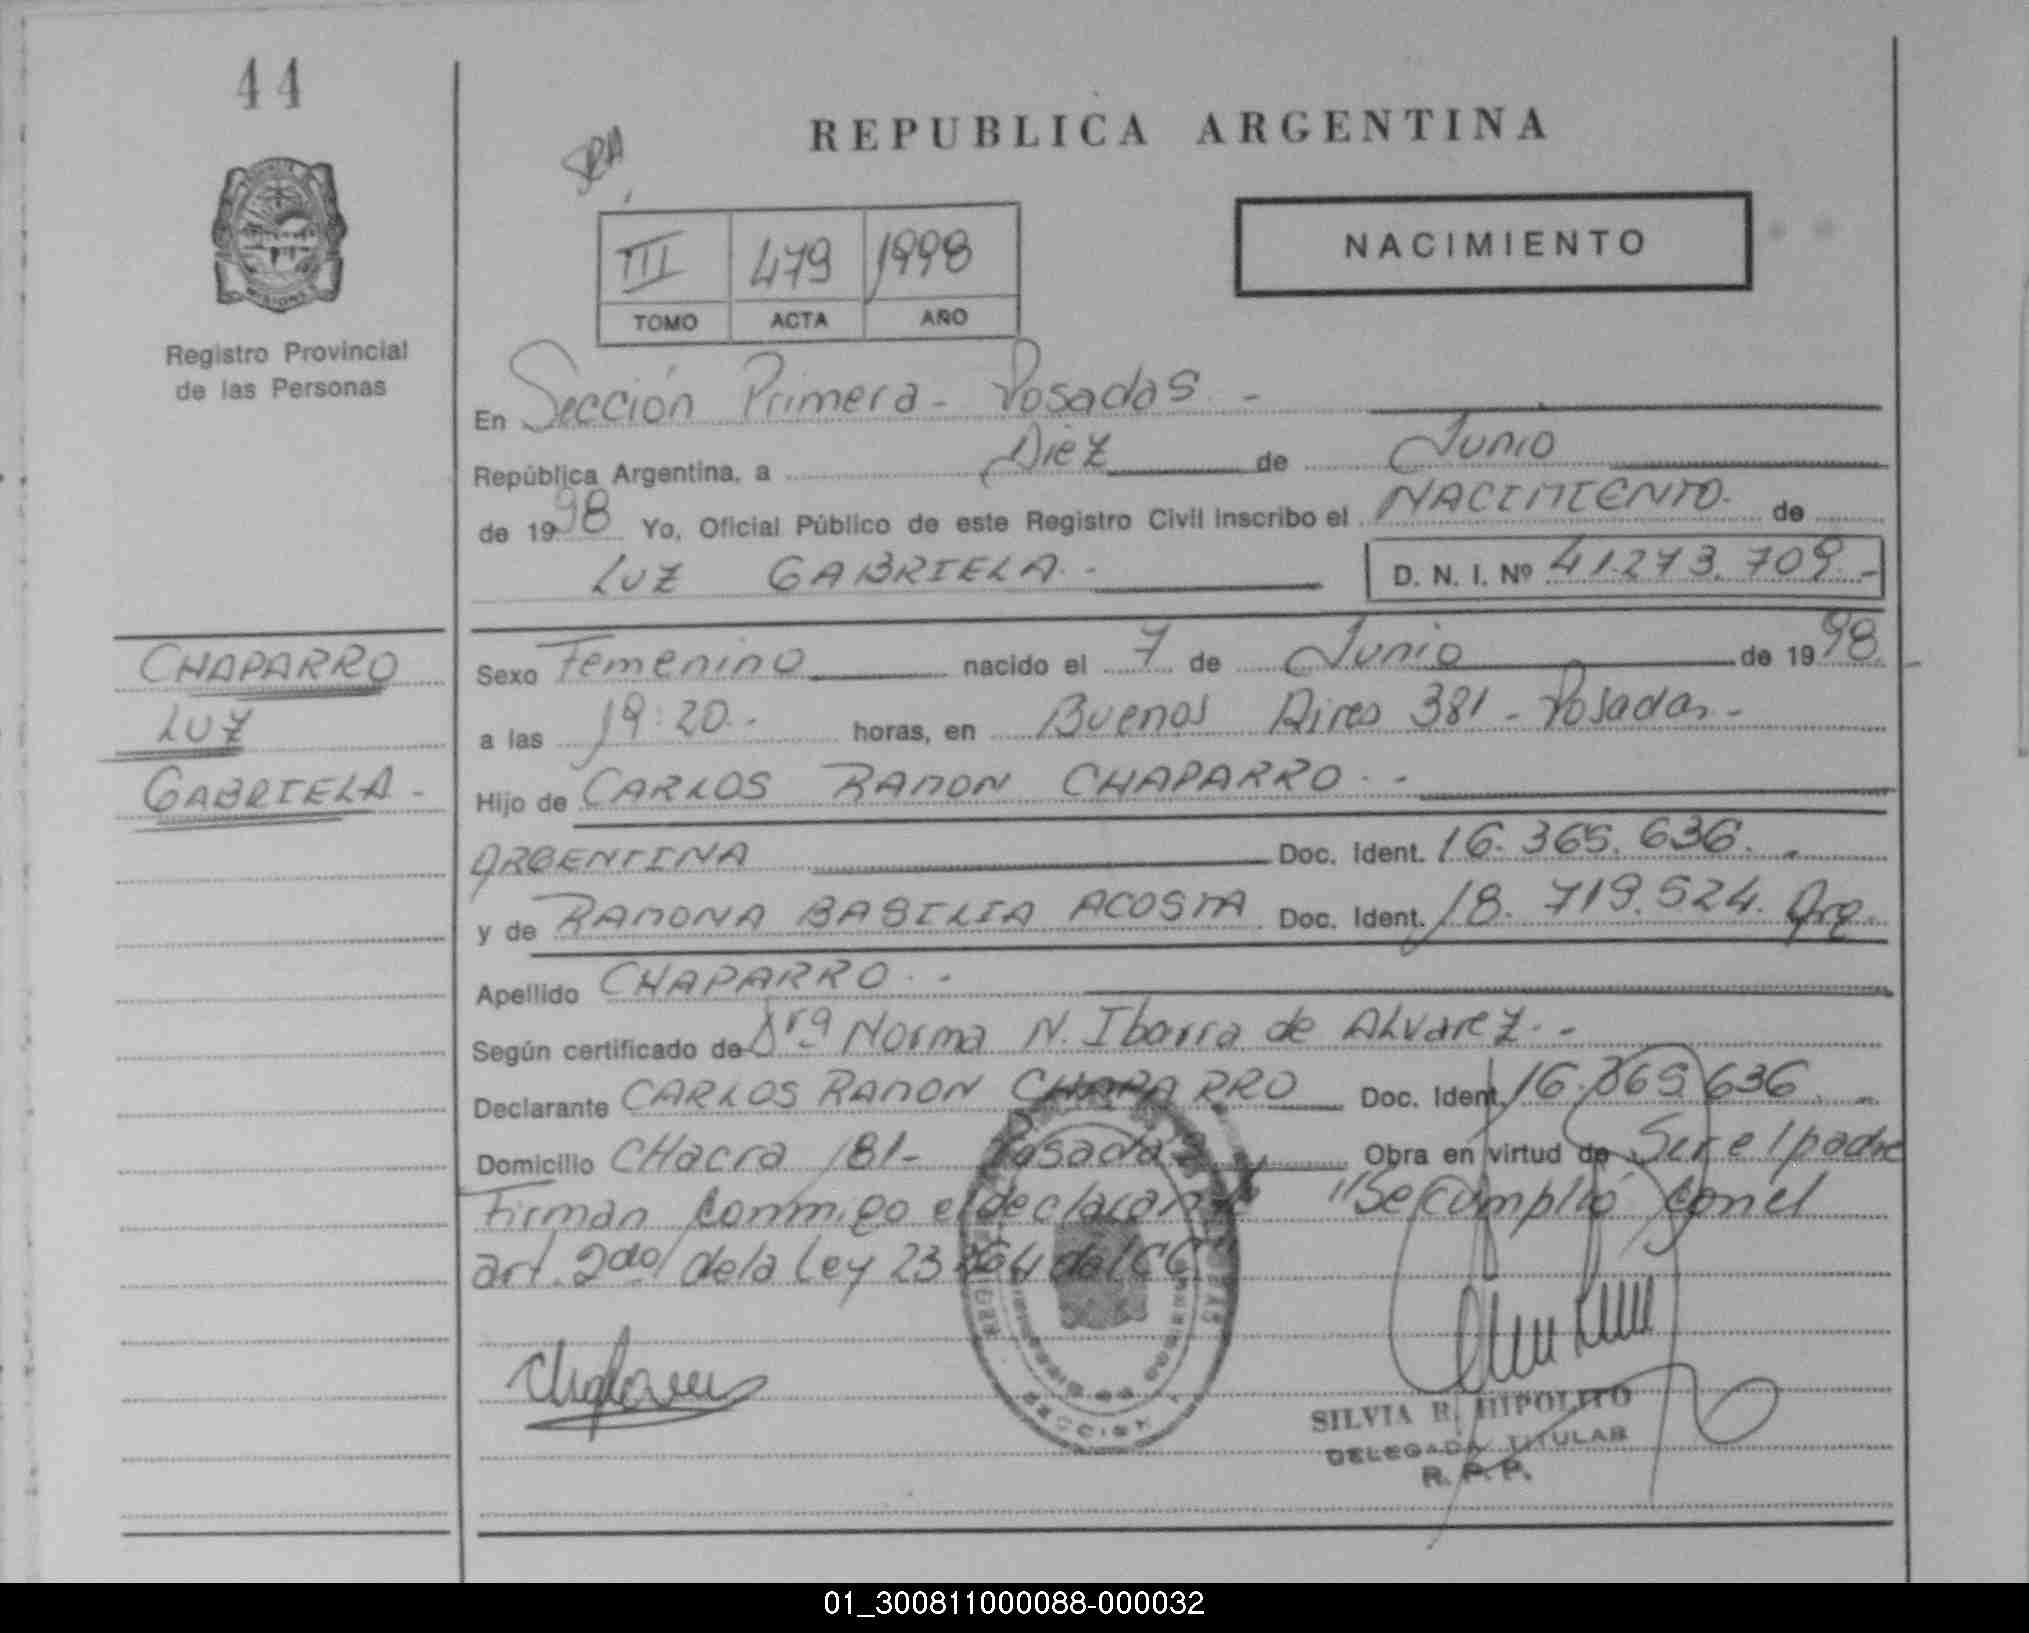 44
REPUBLICA ARGENTINA
III 479 1998
TOMO ACTA AÑO
NACIMIENTO
MISIONES
Registro Provincial
de las Personas
En Sección Primera - Posadas -
República Argentina, a Diez de Junio
de 1998 Yo, Oficial Público de este Registro Civil inscribo el NACIMIENTO de
LUZ GABRIELA.- D. N. I. Nº 41.273.709.-
CHAPARRO
LUZ
GABRIELA -
Sexo Femenino nacido el 7 de Junio de 1998
a las 19:20.- horas, en Buenos Aires 381 - Posadas -
Hijo de CARLOS RAMON CHAPARRO.-
ARGENTINA Doc. Ident. 16.365.636.-
y de RAMONA BASILIA ACOSTA Doc. Ident. 18.719.524. Arg.
Apellido CHAPARRO.-
Según certificado de Dra Norma N. Ibarra de Alvarez.-
Declarante CARLOS RAMON CHAPARRO Doc. Ident. 16.365.636.-
Domicilio CHacra 181 - Posadas Obra en virtud de Ser el padre
Firman conmigo el declarante "Se cumplió con el
art. 2do de la Ley 23264 del CC"
SECCION 1
SILVIA R. HIPOLITO
DELEGADA TITULAR
R. P. P.
01_300811000088-000032